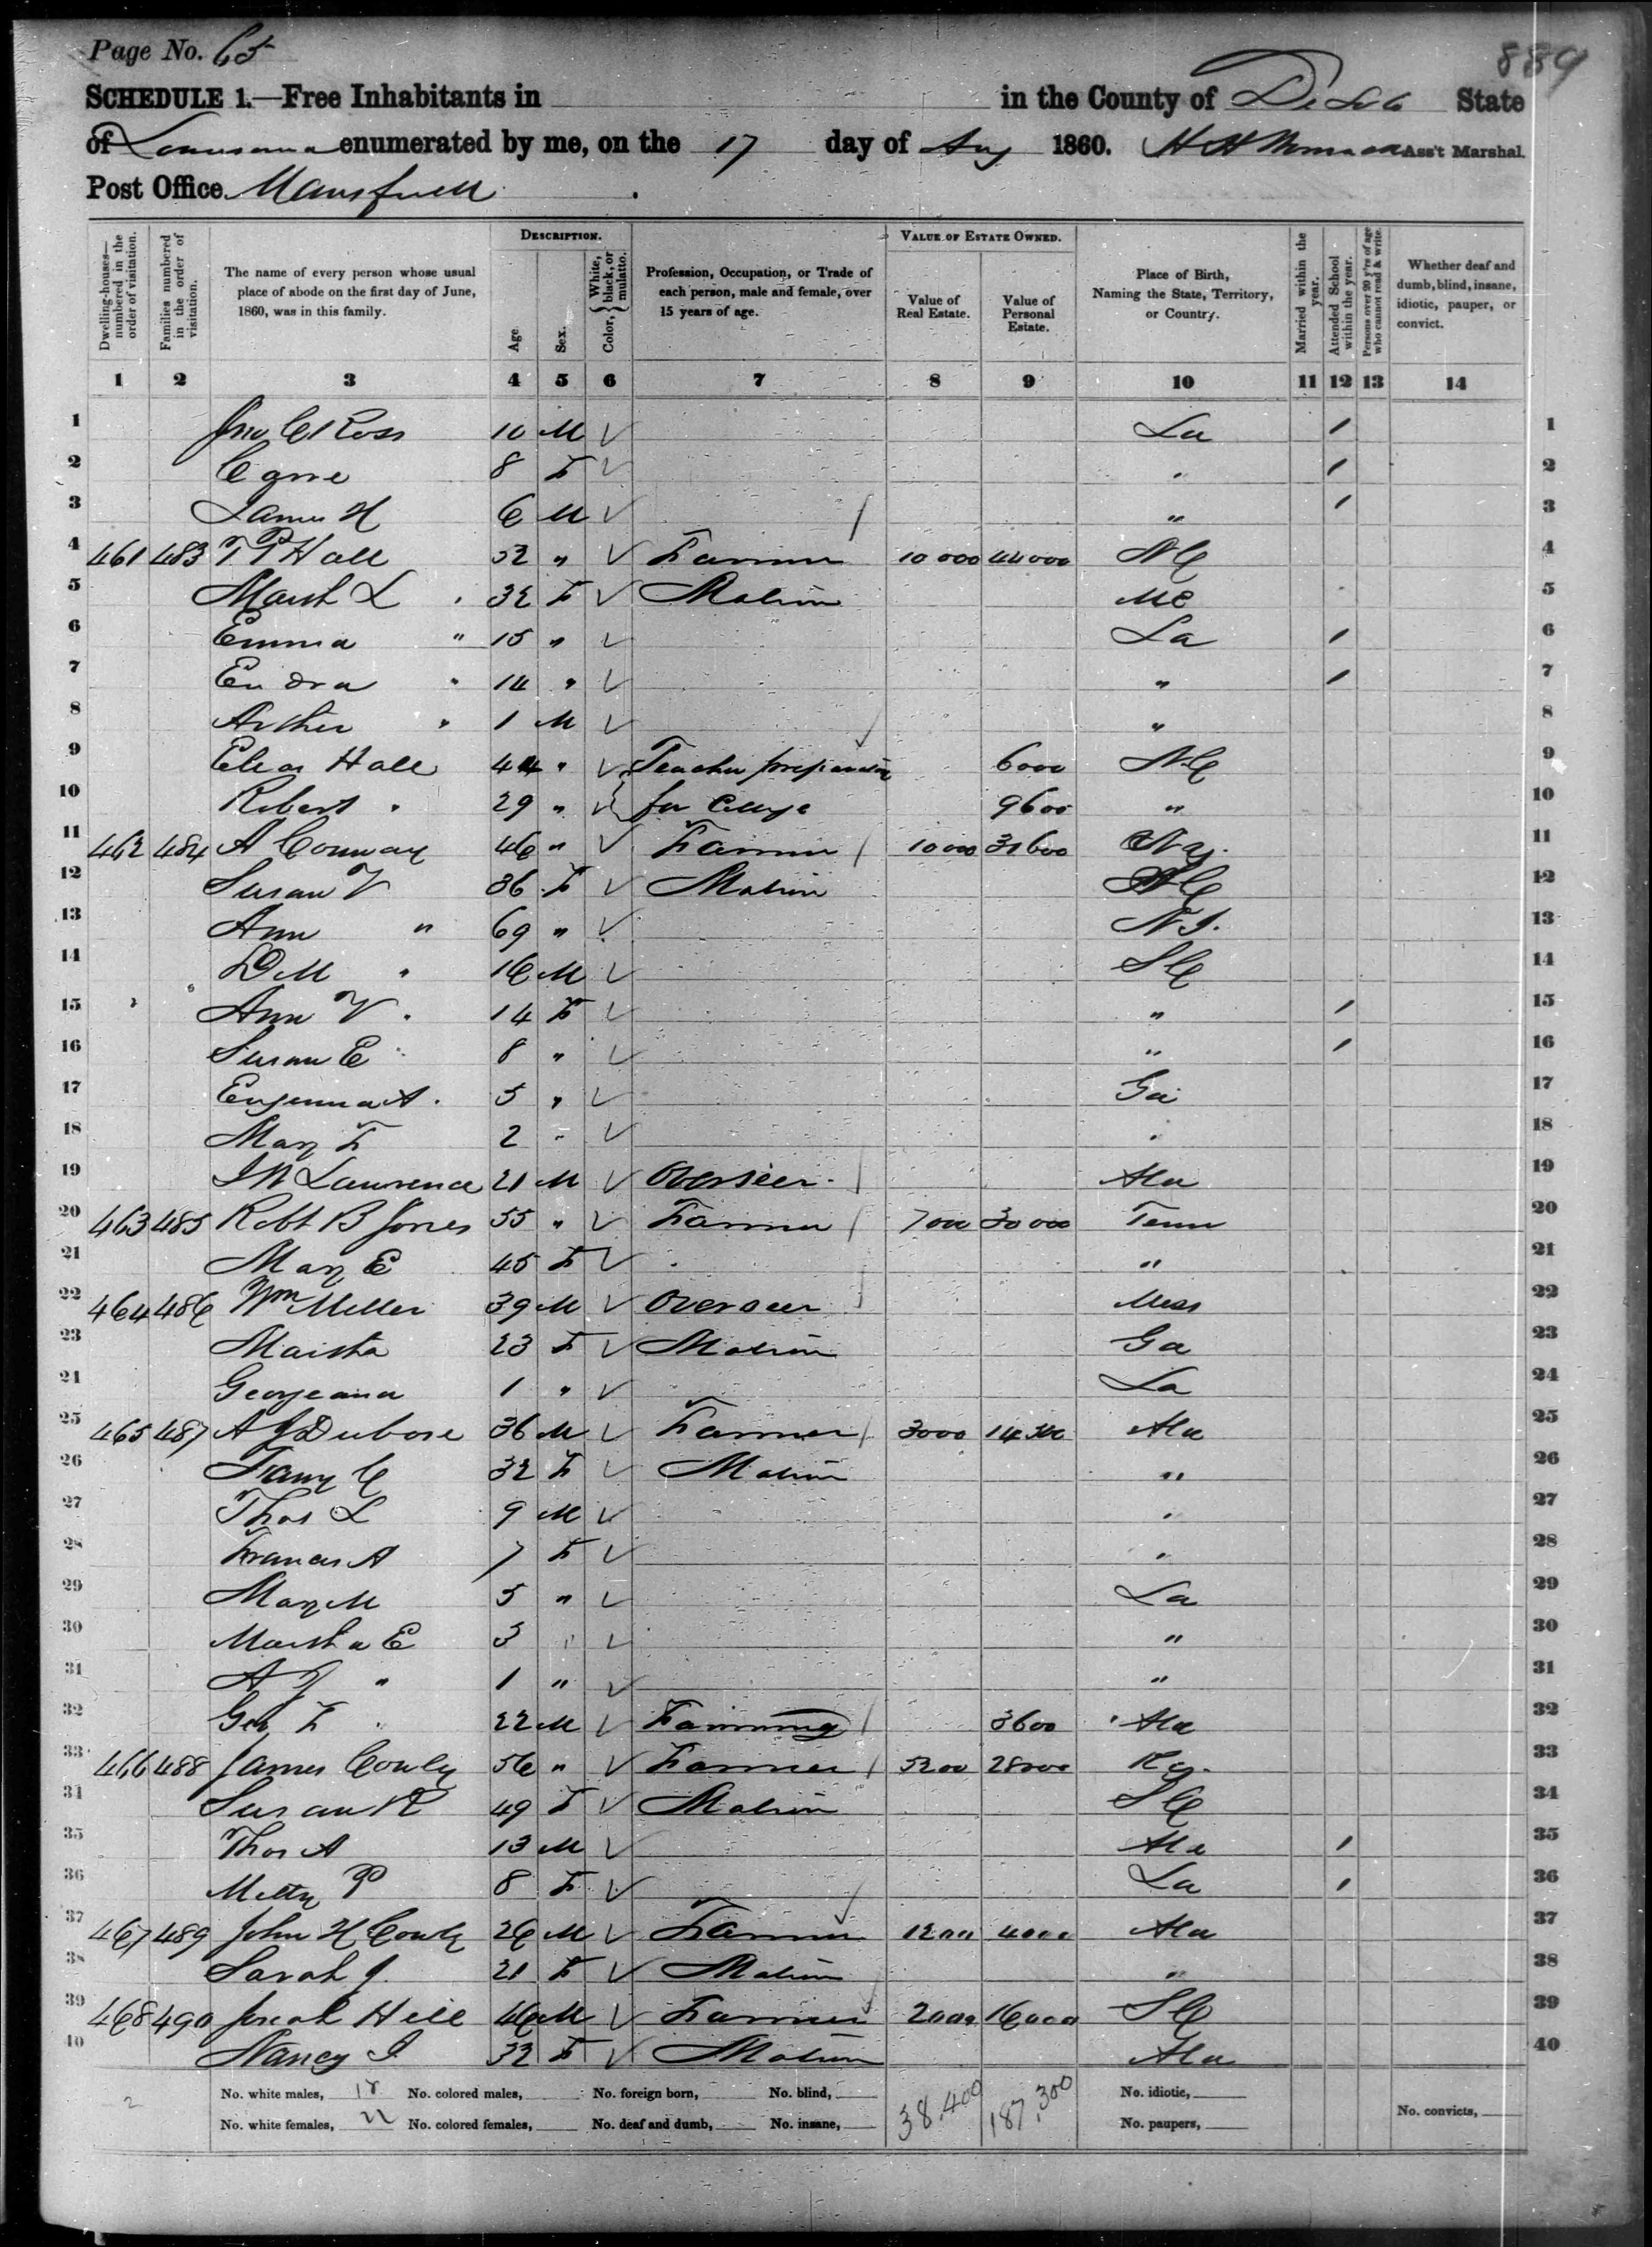 Page No. 65
889
SCHEDULE 1.—Free Inhabitants in in the County of De Soto State
of Louisiana enumerated by me, on the 17 day of Aug 1860. H H Ass't Marshal.
Post Office Mansfield
DESCRIPTION. VALUE OF ESTATE OWNED.
Dwelling-houses—numbered in the order of visitation. Families numbered in the order of visitation. The name of every person whose usual place of abode on the first day of June, 1860, was in this family. Age Sex. Color, { White, black, or mulatto. Profession, Occupation, or Trade of each person, male and female, over 15 years of age. Value of Real Estate. Value of Personal Estate. Place of Birth, Naming the State, Territory, or Country. Married within the year. Attended School within the year. Persons over 20 y'rs of age who cannot read & write. Whether deaf and dumb, blind, insane, idiotic, pauper, or convict.
1 2 3 4 5 6 7 8 9 10 11 12 13 14
1 Jno C Ross 10 M ✓ La / 1
2 8 F ✓ " / 2
3 James H 6 M ✓ / " / 3
4 461 483 T P Hall 52 " ✓ Farmer 10 000 44 000 NC 4
5 Marth L " 32 F ✓ Matron 5
6 Emma " 15 " ✓ La / 6
7 " 14 " ✓ " / 7
8 Arther " 1 M ✓ " 8
9 Elias Hall 44 " ✓ Teacher preparatory 6000 NC 9
10 Robert " 29 " ✓ for College 9600 " 10
11 462 484 A Conway 46 " ✓ Farmer / 10 000 31600 11
12 Susan V 36 F ✓ Matron 12
13 Ann " 69 " ✓ N J. 13
14 D M " 16 M ✓ S C 14
15 Ann V. " 14 F ✓ " / 15
16 Susan E " 8 " ✓ " / 16
17 Eugenna A. 5 " ✓ Ga 17
18 Mary F 2 " ✓ " 18
19 Lawrence 21 M ✓ Overseer / Ala 19
20 463 485 Robt B Jones 55 " ✓ Farmer / 7000 30 000 Tenn 20
21 Mary E 45 F ✓ " 21
22 464 486 Wm Miller 39 M ✓ Overseer / Miss 22
23 Martha 23 F ✓ Matron Ga 23
24 Georgeana 1 " ✓ La 24
25 465 487 A J Dubose 36 M ✓ Farmer / 3000 Ala 25
26 Fany C 32 F ✓ Matron " 26
27 Thos L 9 M ✓ " 27
28 Frances A 7 F ✓ " 28
29 Mary M 5 " ✓ La 29
30 Martha E 3 " ✓ " 30
31 A J " 1 " ✓ " 31
32 Geo F " 22 M ✓ Farming / 3600 Ala 32
33 466 488 James Conly 56 " ✓ Farmer / 5200 28000 Ky. 33
34 Susan R 49 F ✓ Matron S C 34
35 Thos A 13 M ✓ Ala / 35
36 P 8 F ✓ La / 36
37 467 489 John H Conly 26 M ✓ Farmer 1200 4000 Ala 37
38 Sarah J. 21 F ✓ Matron " 38
39 468 490 Josiah Hill 46 M ✓ Farmer 2000 16000 S C 39
40 Nancy J 32 F ✓ Matron Ala 40
No. white males, 18 No. colored males, No. foreign born, No. blind, 38,400 187,300 No. idiotic,
2 No. white females, 22 No. colored females, No. deaf and dumb, No. insane, No. paupers, No. convicts,